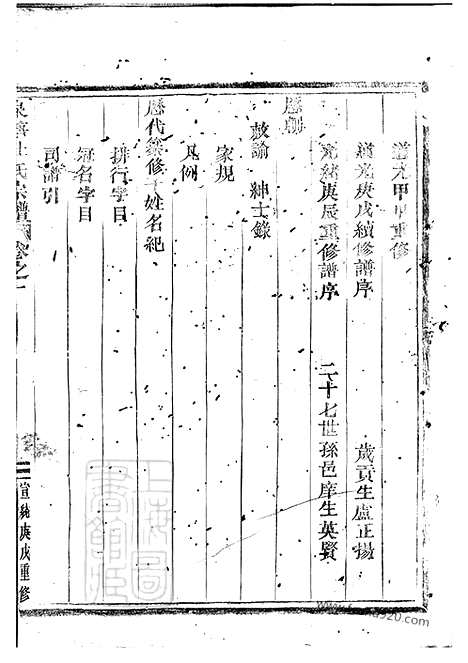 道光甲申重修
道光庚戌續修譜序 歲貢生盧正揚
光緒庚辰重修譜序 二十七世孫邑庠生英賢
歷朝
敕諭 紳士錄
家規
凡例
歷代纂修姓名紀
排行字目
冠名字目
司譜引
氏宗譜 卷之一 宣統庚戌重修